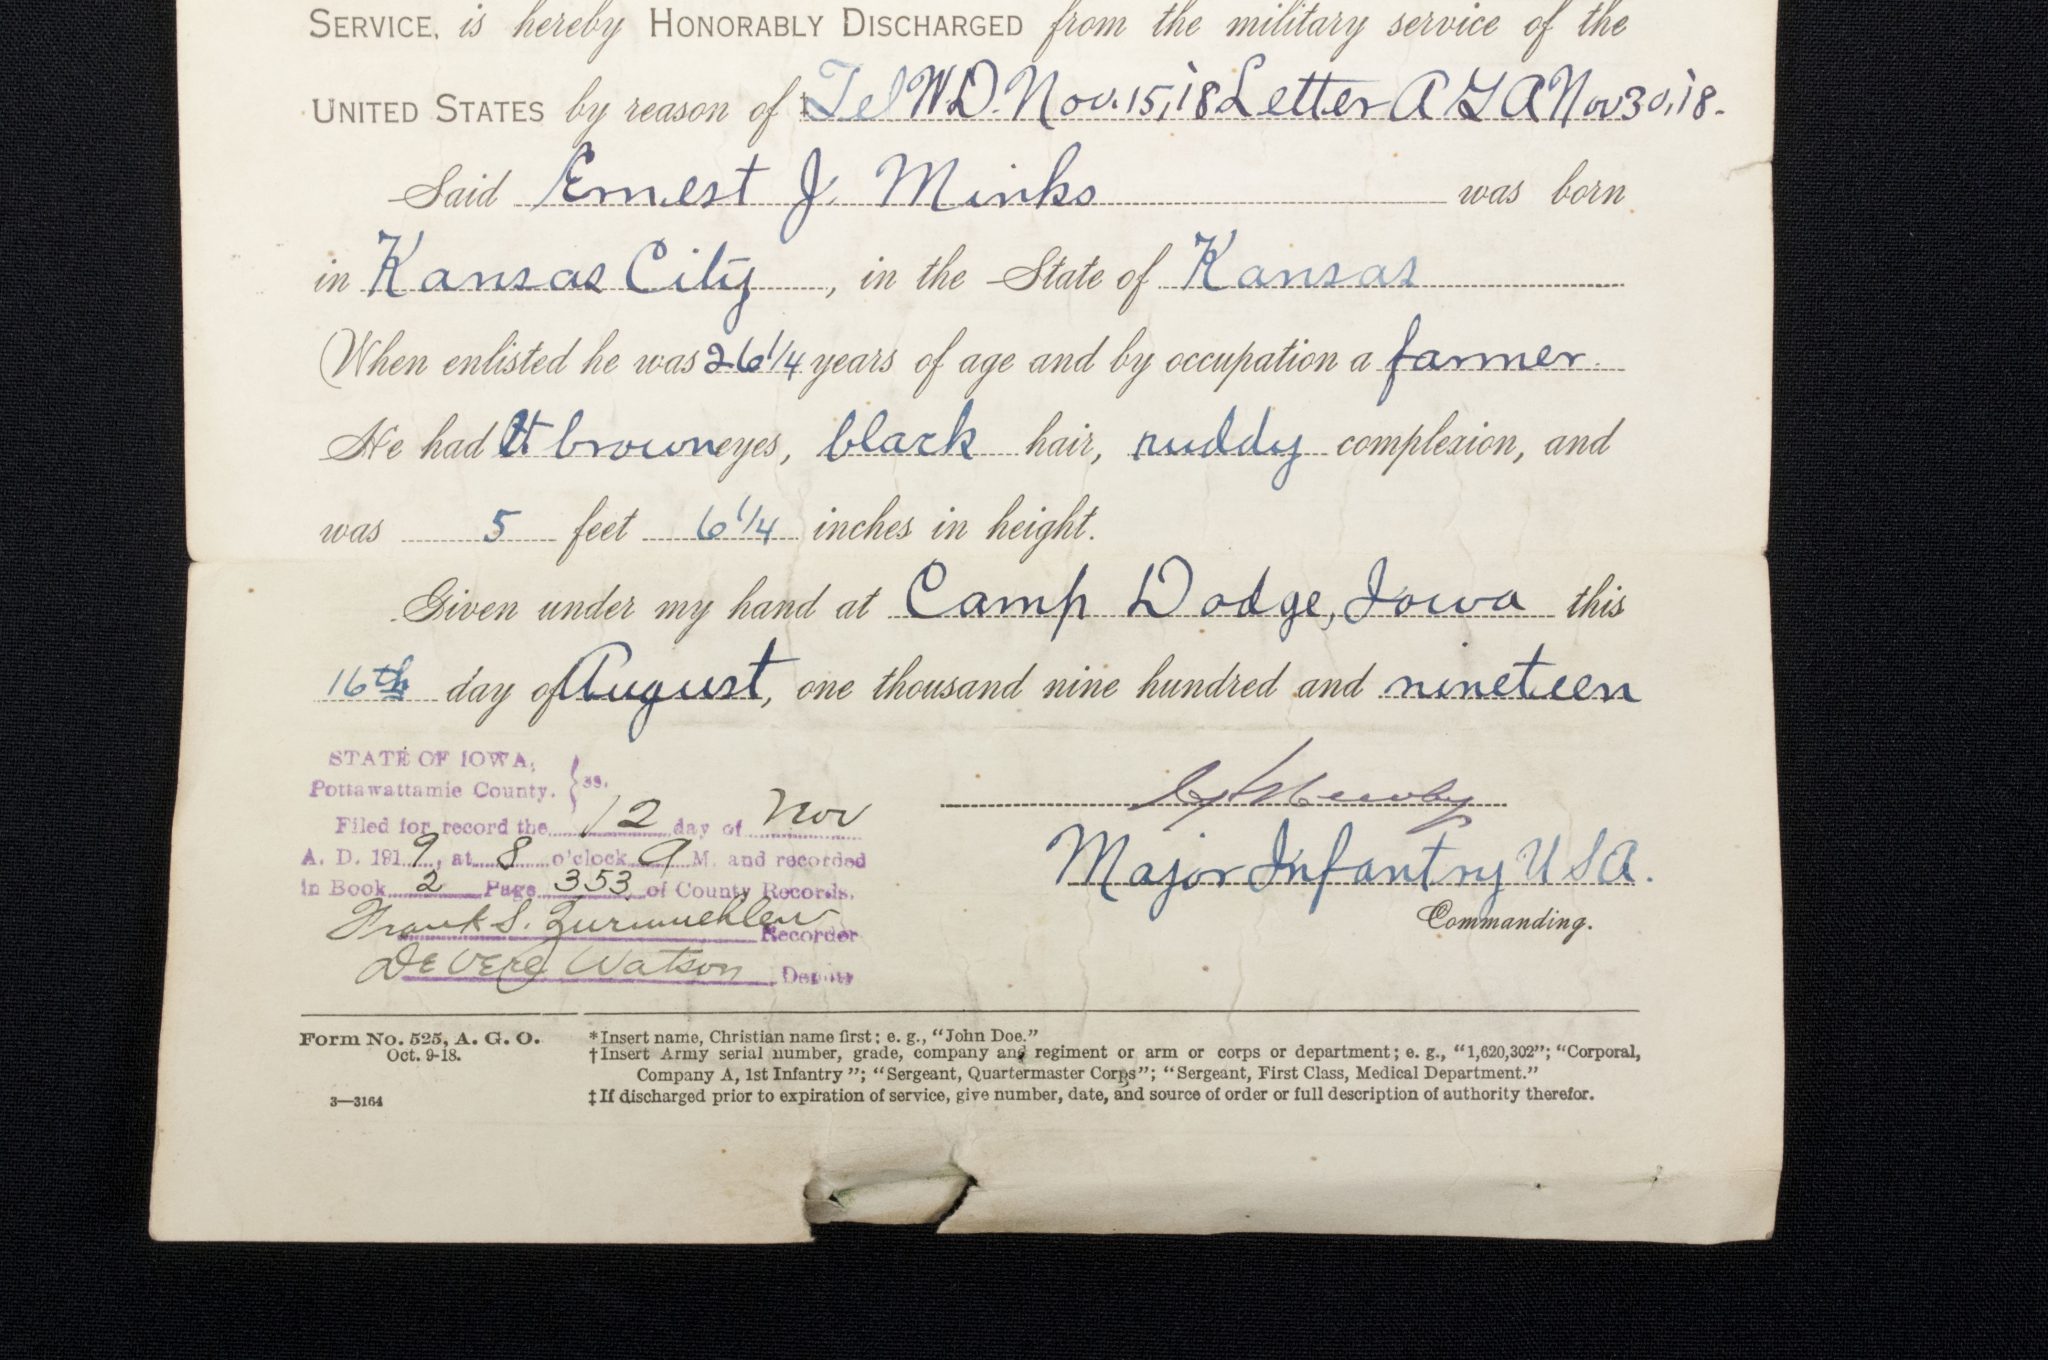 SERVICE, is hereby HONORABLY DISCHARGED from the military service of the
UNITED STATES by reason of ‡Tel W.D. Nov. 15, '18 Letter A G A Nov 30, '18.
Said Ernest J. Minks was born
in Kansas City, in the State of Kansas
When enlisted he was 26 1/4 years of age and by occupation a farmer
He had lt brown eyes, black hair, ruddy complexion, and
was 5 feet 6 1/4 inches in height.
Given under my hand at Camp Dodge, Iowa this
16th day of August, one thousand nine hundred and nineteen
STATE OF IOWA,
Pottawattamie County. } ss.
Filed for record the 12 day of Nov
A. D. 1919, at 8 o'clock A M. and recorded
in Book 2 Page 353 of County Records.
Frank S. Zurmuehlen Recorder
DeVere Watson Deputy
Major Infantry U S A.
Commanding.
Form No. 525, A. G. O.
Oct. 9-18.
3—3164
*Insert name, Christian name first; e. g., "John Doe."
†Insert Army serial number, grade, company and regiment or arm or corps or department; e. g., "1,620,302"; "Corporal,
Company A, 1st Infantry"; "Sergeant, Quartermaster Corps"; "Sergeant, First Class, Medical Department."
‡If discharged prior to expiration of service, give number, date, and source of order or full description of authority therefor.